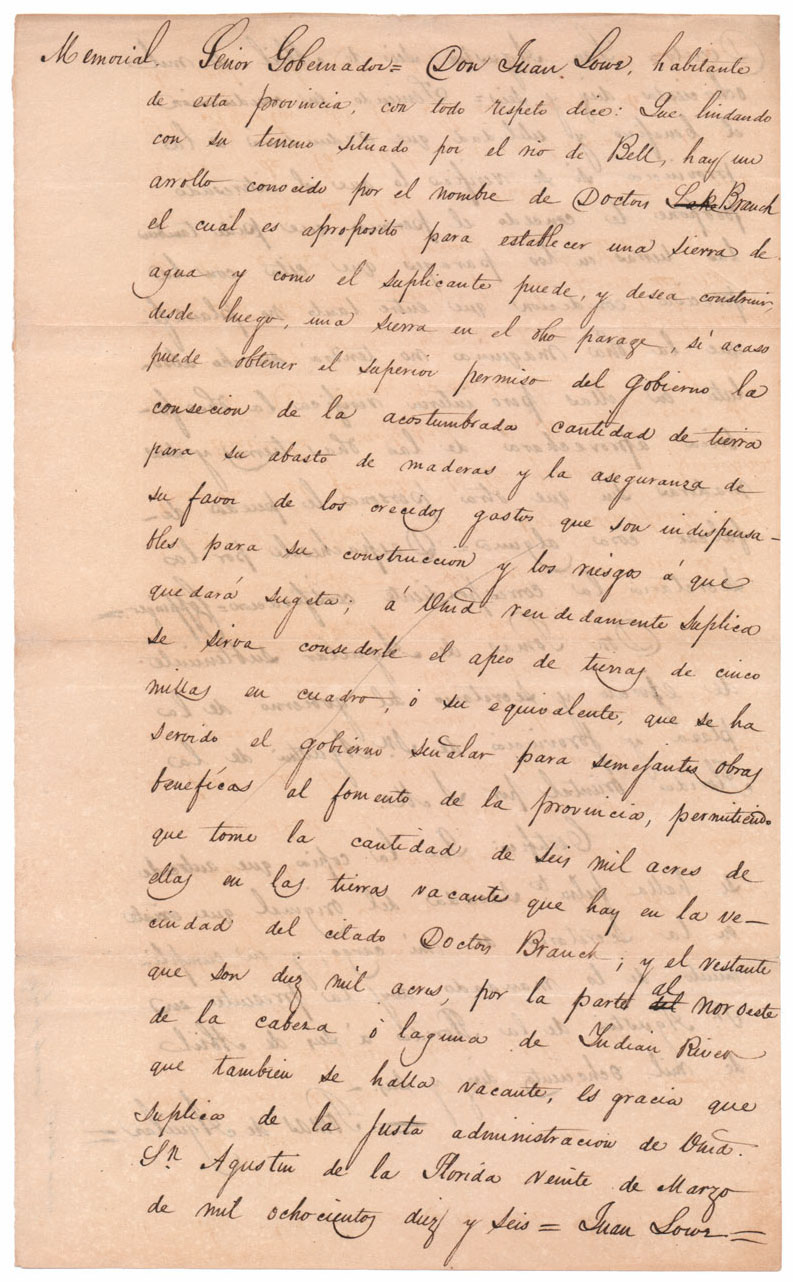 Memorial. Señor Gobernador= Don Juan Lowe, habitante
de esta provincia, con todo respeto dice: Que lindando
con su terreno situado por el rio de Bell, hay un
arrollo conocido por el nombre de Doctors Lake Branch
el cual es aproposito para establecer una sierra de
agua y como el suplicante puede, y desea construir,
desde luego, una sierra en el dho parage, si acaso
puede obtener el superior permiso del gobierno la
consecion de la acostumbrada cantidad de tierra
para su abasto de maderas y la aseguranza de
su favor de los crecidos gastos que son indispensa-
bles para su construccion y los riesgos á que
quedará sugeta; á Vmd rendidamente suplica
se sirva consederle el apeo de tierras de cinco
millas en cuadro, ó su equivalente, que se ha
servido el gobierno señalar para semejantes obras
benefícas al fomento de la provincia, permitiendo
que tome la cantidad de seis mil acres de
ellas en las tierras vacantes que hay en la ve-
cindad del citado Doctors Branch; y el restante
que son diez mil acres, por la parte del al noroeste
de la cabeza ó laguna de Indian River
que tambien se halla vacante, es gracia que
suplica de la justa administracion de Vmd.
Sn Agustin de la Florida veinte de Marzo
de mil ochocientos diez y seis = Juan Lowe=